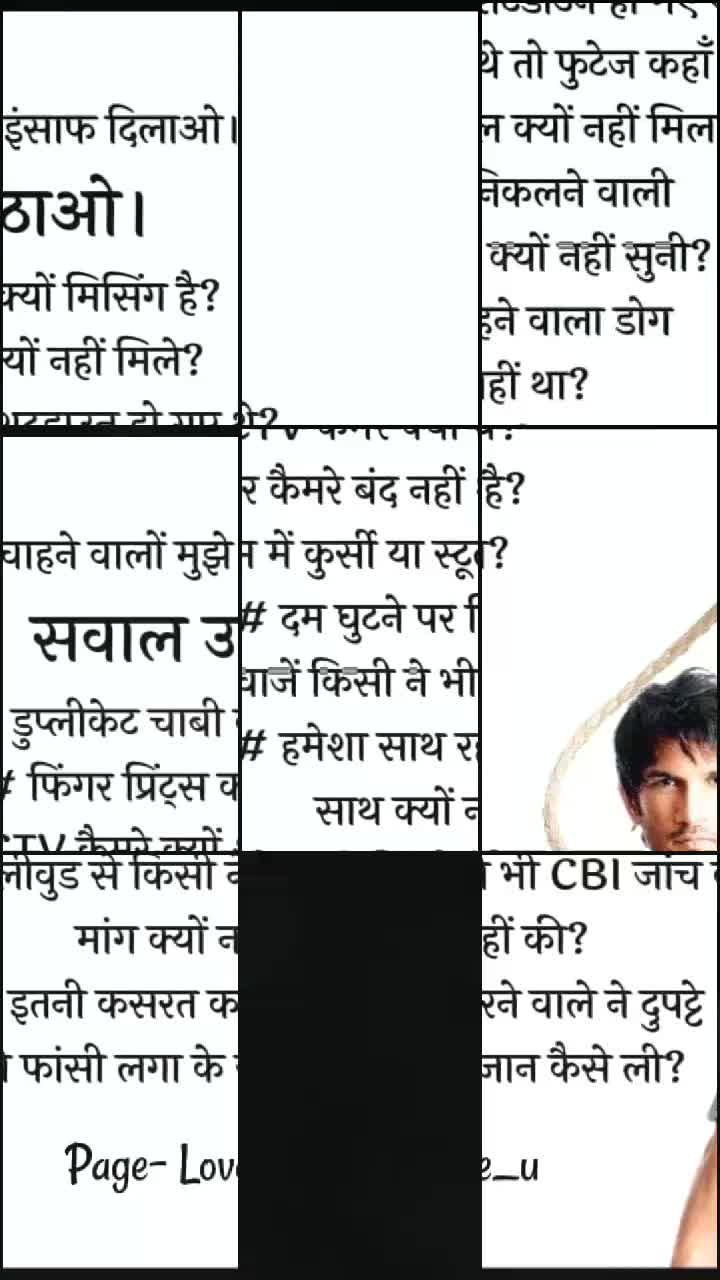 इंसाफ दिलाओ।
ठाओ।
क्यों मिसिंग है?
यों नहीं मिले?
थे तो फुटेज कहाँ
ल क्यों नहीं मिल
निकलने वाली
क्यों नहीं सुनी?
हने वाला डोग
हीं था?
चाहने वालों मुझे
सवाल उ
डुप्लीकेट चाबी
# फिंगर प्रिंट्स क
TV कैमरे क्यों
र कैमरे बंद नहीं है?
में कुर्सी या स्टूल?
# दम घुटने पर
वाजें किसी ने भी
# हमेशा साथ रह
साथ क्यों न
लीवुड से किसी ने भी CBI जांच
मांग क्यों नहीं की?
इतनी कसरत करने वाले ने दुपट्टे
फांसी लगा के जान कैसे ली?
Page- Lov e_u